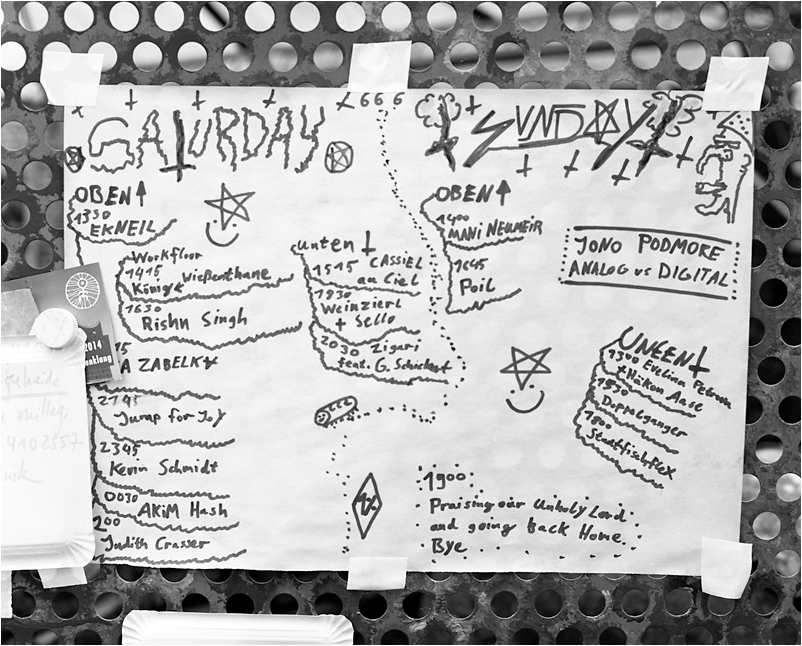 SATURDAY
666
OBEN
1330
EKNEIL
Workfloor
1415
König
Wießenthane
1630
Rishn Singh
A ZABELKA
2145
Jump for Joy
2345
Kevin Schmidt
0030
AKiM Hash
200
Judith Crasser
unten
1515 CASSIEL
an Ciel
1830
Weinzierl
+ Sello
2030 Zigari
feat. G. Schickert
SUNDAY
OBEN
1400
MANi NEUMEiR
1645
Poil
JONO PODMORE
ANALOG vs DIGITAL
UNTEN
1300 Evelina Petrova
+ Håkon Aase
1530
Doppelganger
1800
Stontfischflex
1900
Praising our Unholy Lord
and going Back Home.
Bye
2014
nklang
geheide
mitteg.
4102557